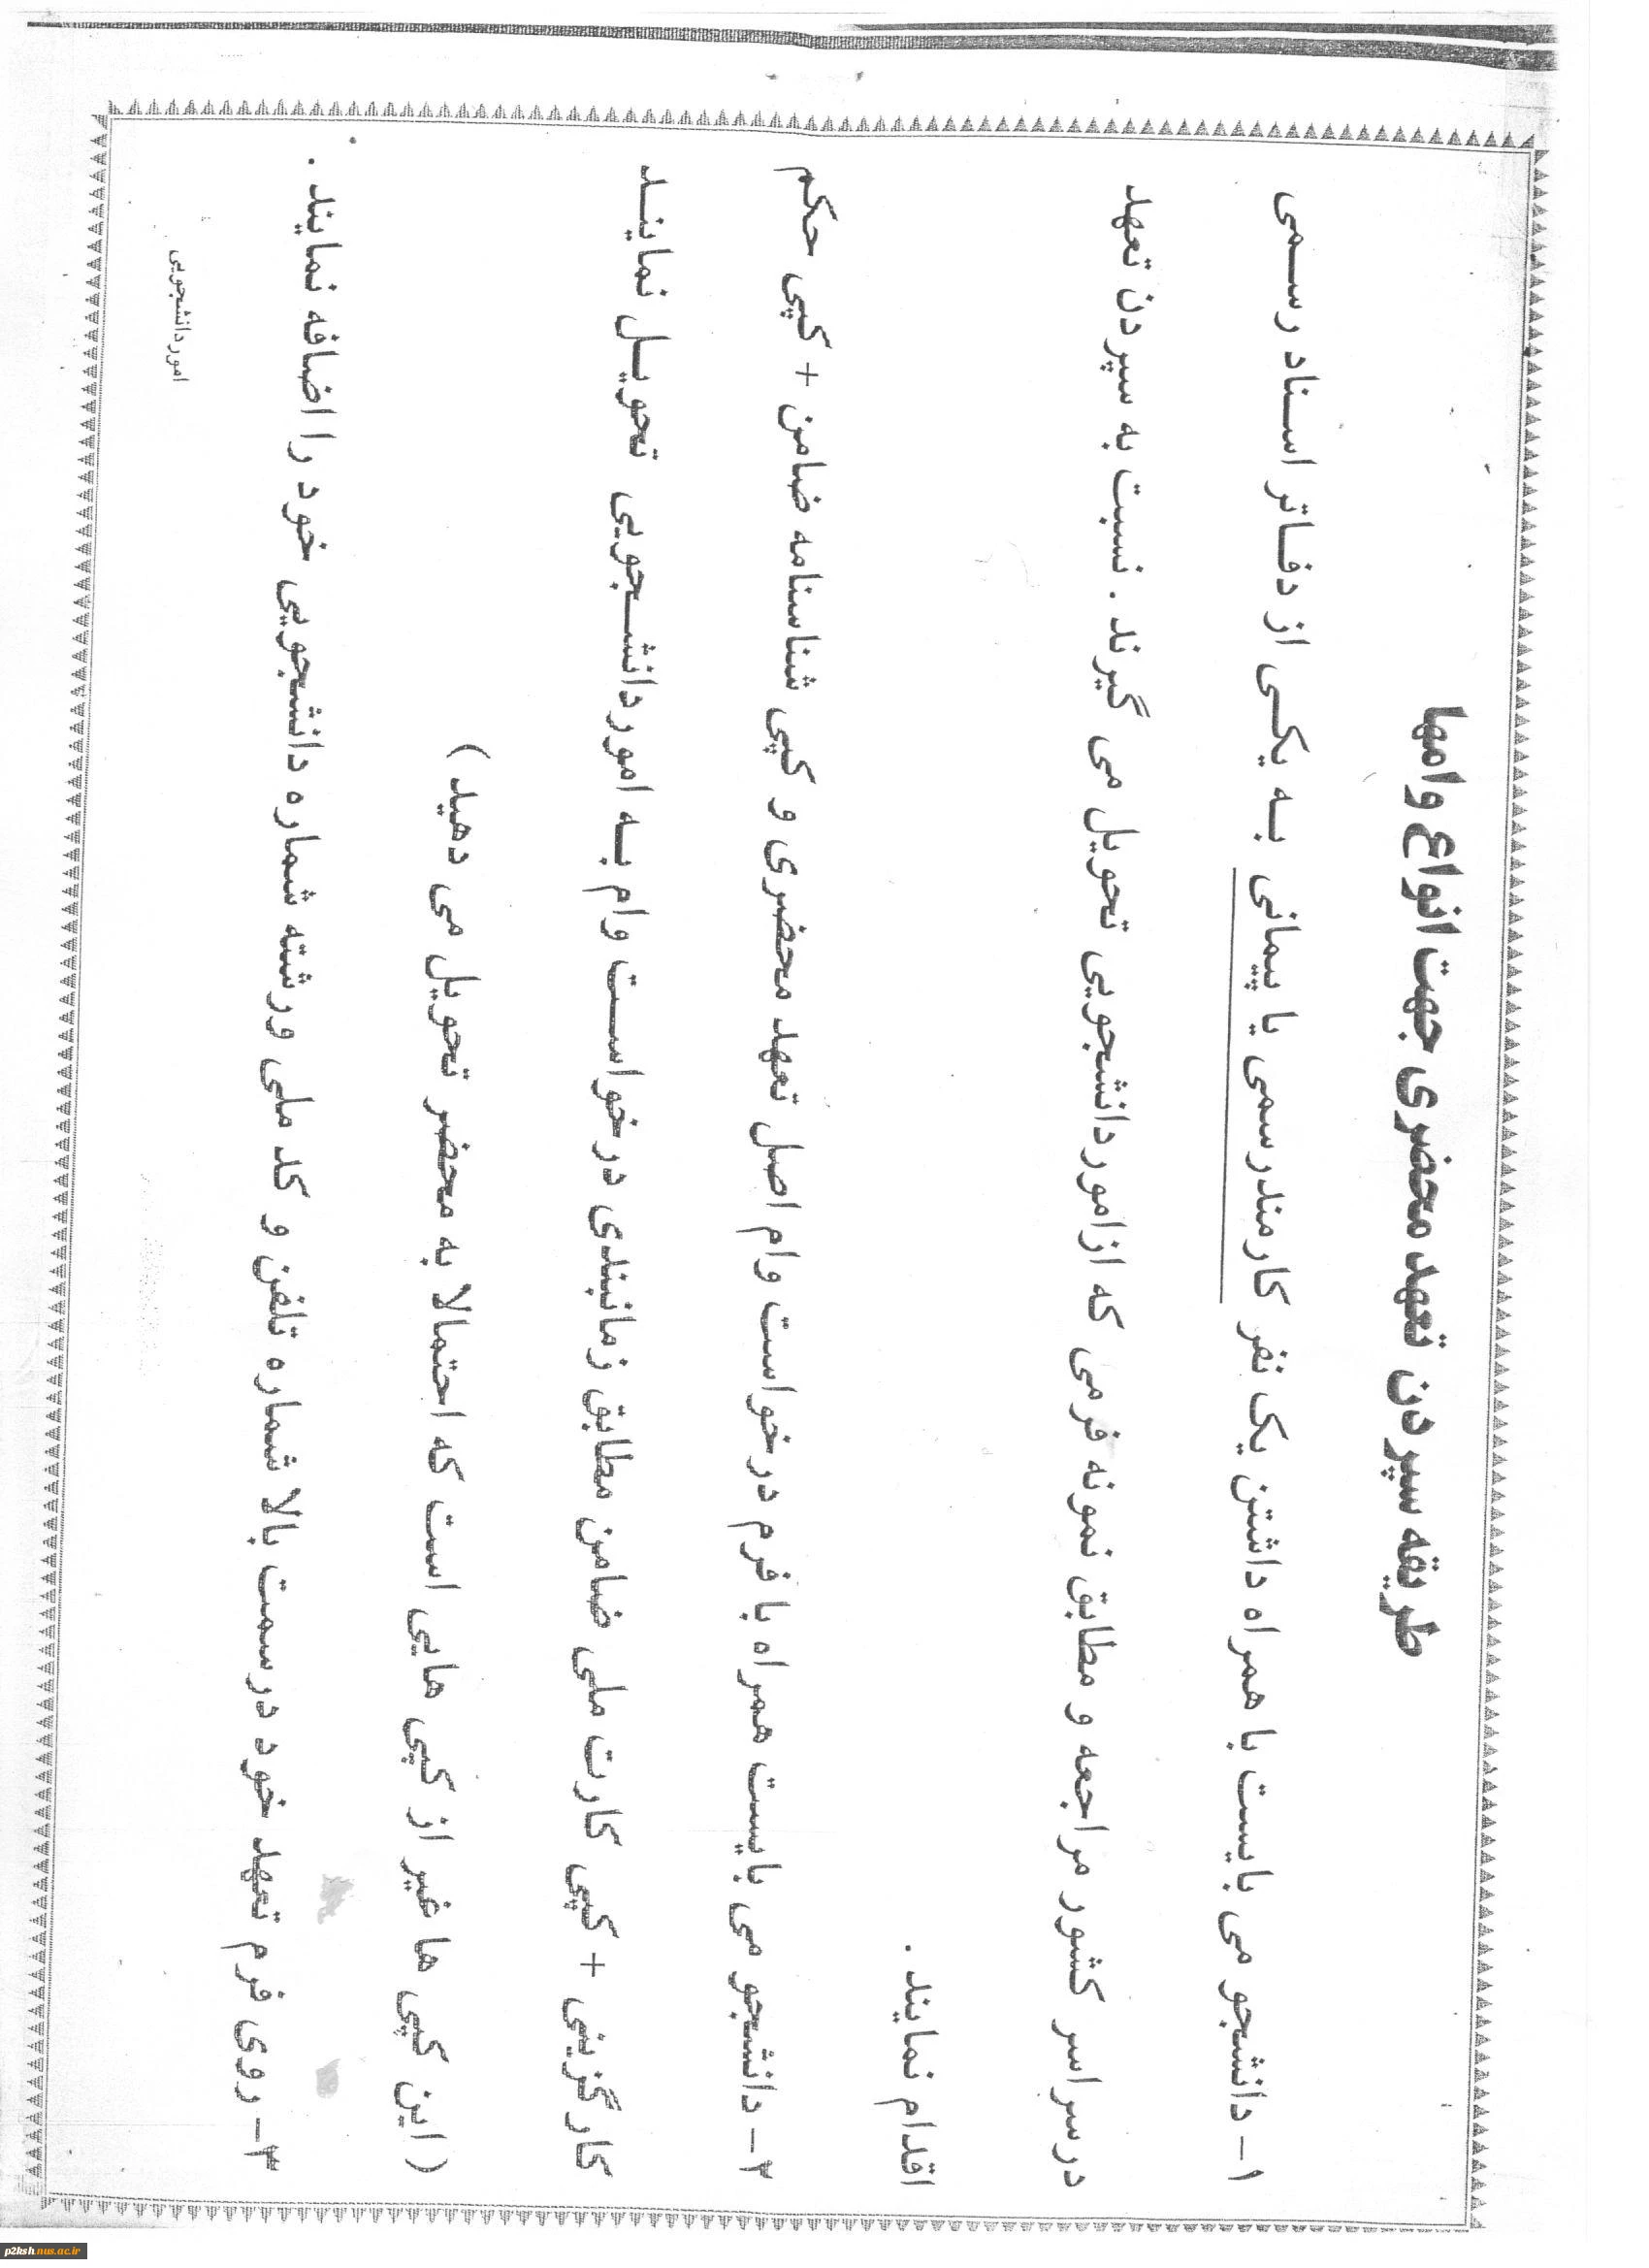 طریقه سپردن تعهد محضری جهت انواع وامها
۱- دانشجو می بایست با همراه داشتن یک نفر کارمندرسمی یا پیمانی به یکی از دفاتر اسناد رسمی
درسراسر کشور مراجعه و مطابق نمونه فرمی که ازاموردانشجویی تحویل می گیرند . نسبت به سپردن تعهد
اقدام نمایند .
۲- دانشجو می بایست همراه با فرم درخواست وام اصل تعهد محضری و کپی شناسنامه ضامن + کپی حکم
کارگزینی + کپی کارت ملی ضامن مطابق زمانبندی درخواست وام به اموردانشجویی تحویل نمایند
( این کپی ها غیر از کپی هایی است که احتمالا به محضر تحویل می دهید )
۳- روی فرم تعهد خود درسمت بالا شماره تلفن و کد ملی ورشته شماره دانشجویی خود را اضافه نمایند .
اموردانشجویی
p2ksh.nus.ac.ir